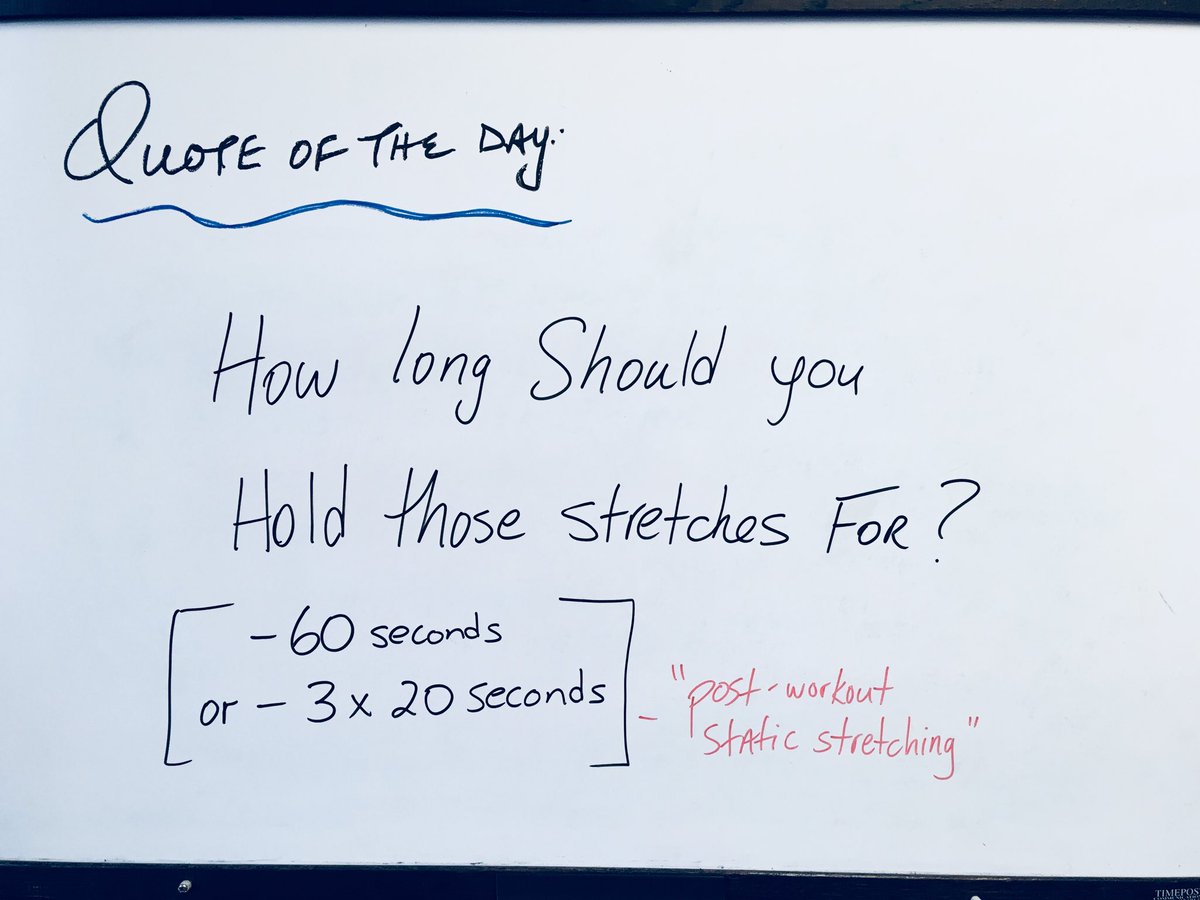 QUOTE OF THE DAY:
How long Should you
Hold those stretches FOR?
- 60 seconds
or - 3 x 20 seconds
- "post-workout
static stretching"
TIMEPOS